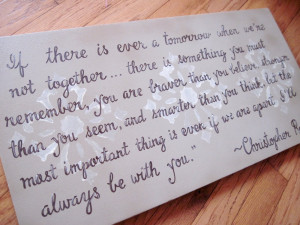 If there is ever a tomorrow when we're
not together... there is something you must
remember, you are braver than you believe, stronger
than you seem, and smarter than you think, but the
most important thing is even if we are apart I'll
always be with you."
~Christopher R